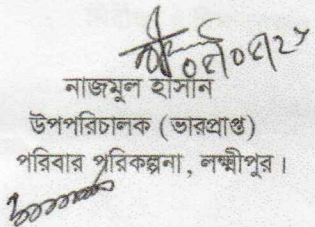 নাজমুল হাসান
উপপরিচালক (ভারপ্রাপ্ত)
পরিবার পরিকল্পনা, লক্ষ্মীপুর।